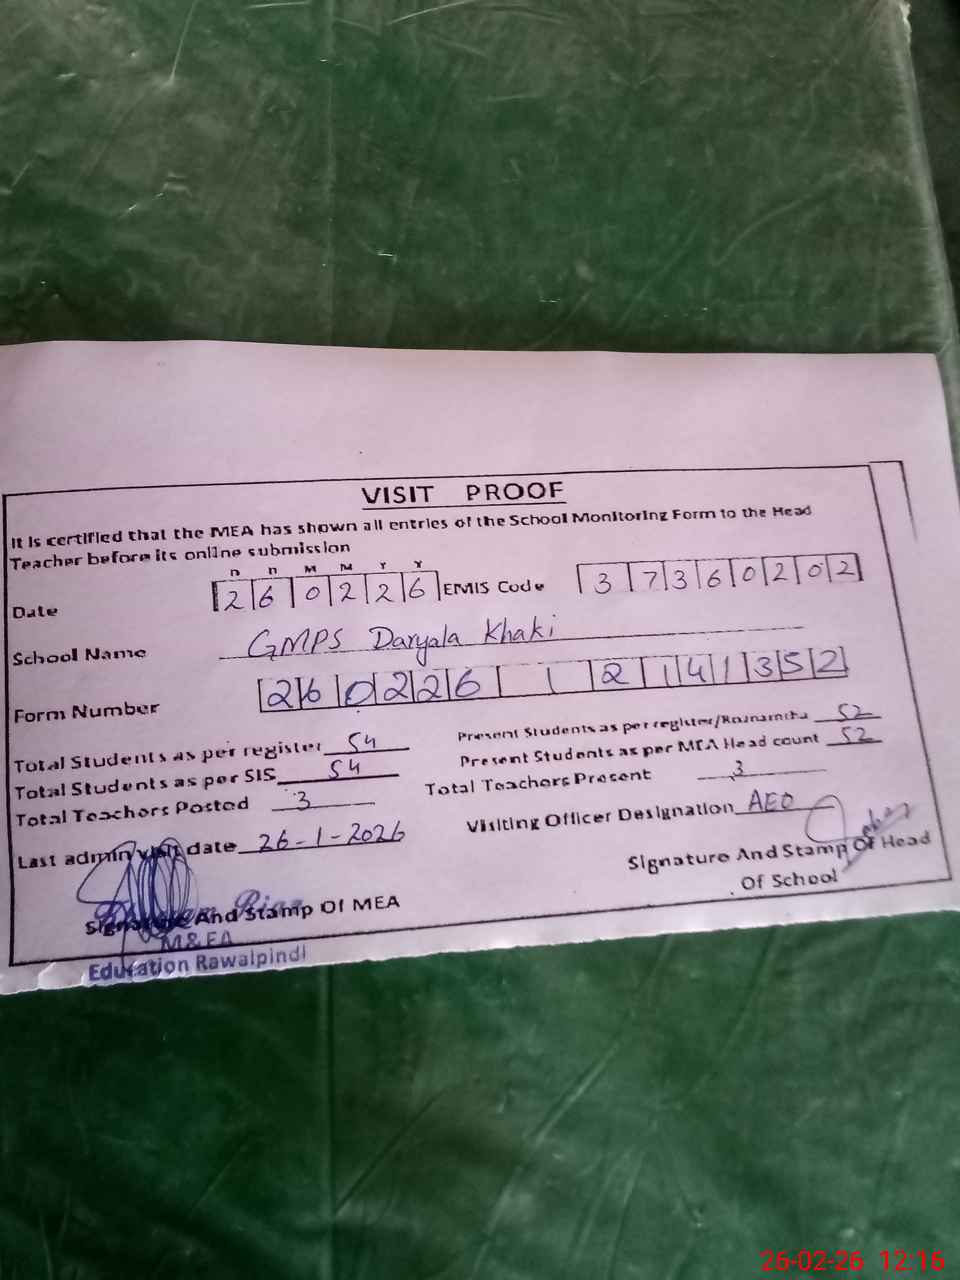 VISIT PROOF
It is certified that the MEA has shown all entries of the School Monitoring Form to the Head
Teacher before its online submission
D D M M Y Y
Date 2 6 0 2 2 6 EMIS Code 3 7 3 6 0 2 0 2
School Name GMPS Daryala Khaki
Form Number 2 6 0 2 2 6 1 2 1 4 1 3 5 2
Total Students as per register 54 Present Students as per register/Roznamcha 52
Total Students as per SIS 54 Present Students as per MEA Head count 52
Total Teachers Posted 3 Total Teachers Present 3
Last admin visit date 26-1-2026 Visiting Officer Designation AEO
Signature And Stamp Of MEA Signature And Stamp Of Head
Of School
M&EA
Education Rawalpindi
26-02-26 12:16